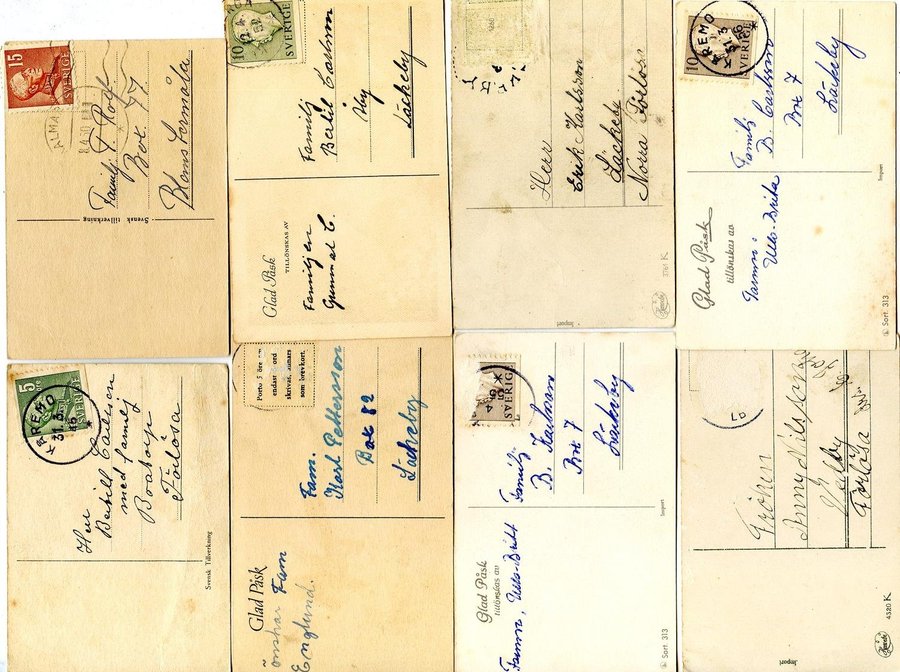 15
SVERIGE
ALMA
Familj
Box 77
Svensk tillverkning
10
SVERIGE
Familj
Bertil Carlsson
Ny
Läckeby
Glad Påsk
TILLÖNSKAS AV
Familjen
Gunnar C.
Herr
Erik Karlsson
Läckeby
Norra
3761 K
Import
10
SVERIGE
KAREMO
31.3
56
Familj
B. Carlsson
Box 7
Läckeby
Glad Påsk
tillönskas av
Ulla-Brita
Import
Sort. 313
5
ÖRE
KAREMO
31.3
Herr
Bertill Carlsson
med familj
Boatorp
Förlösa
Svensk Tillverkning
Porto 5 öre om
endast 5 ord
skrivas, annars
som brevkort.
Fam.
Karl Pettersson
Box 82
Läckeby
Glad Påsk
önskar Fam
Englund.
SVERIGE
Familj
B. Karlsson
Box 7
Läckeby
Glad Påsk
tillönskas av
Ulla-Britt
Import
Sort 313
Fröken
Anny Nilsson
Förlösa
4320 K
Import